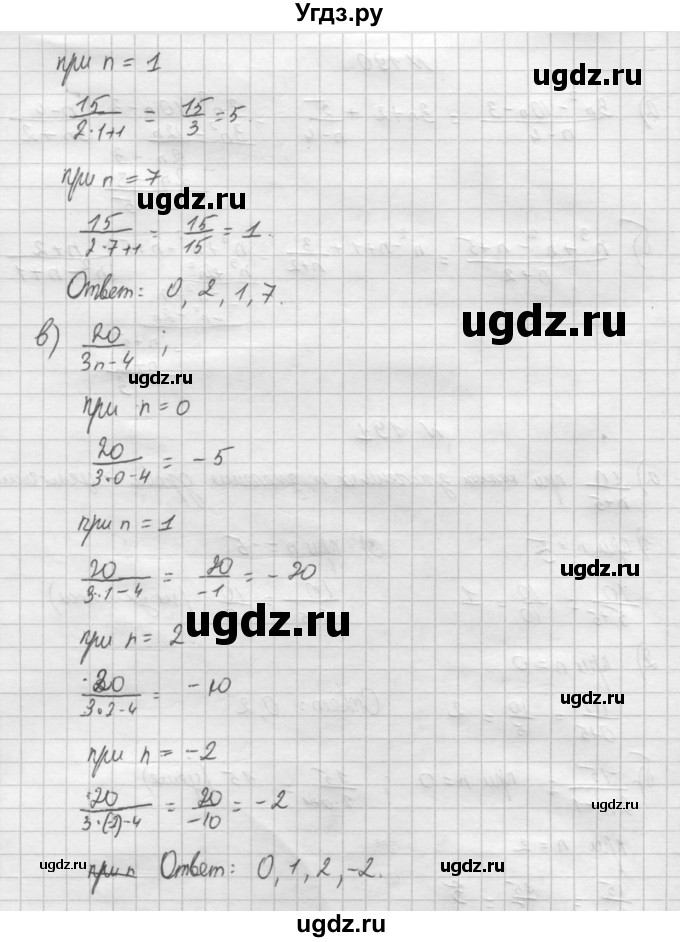 Угдз.ру
при n = 1
15/(2·1+1) = 15/3 = 5.
ugdz.ru
при n = 7
ugdz.ru
15/(2·7+1) = 15/15 = 1.
Ответ: 0, 2, 1, 7.
ugdz.ru
в) 20/(3n-4) ;
ugdz.ru
при n = 0
20/(3·0-4) = -5
при n = 1
ugdz.ru
20/(3·1-4) = 20/-1 = -20
ugdz.ru
при n = 2
20/(3·2-4) = -10
ugdz.ru
при n = -2
20/(3·(-2)-4) = 20/-10 = -2
ugdz.ru
ugdz.ru при n Ответ: 0, 1, 2, -2. ugdz.ru
ugdz.ru